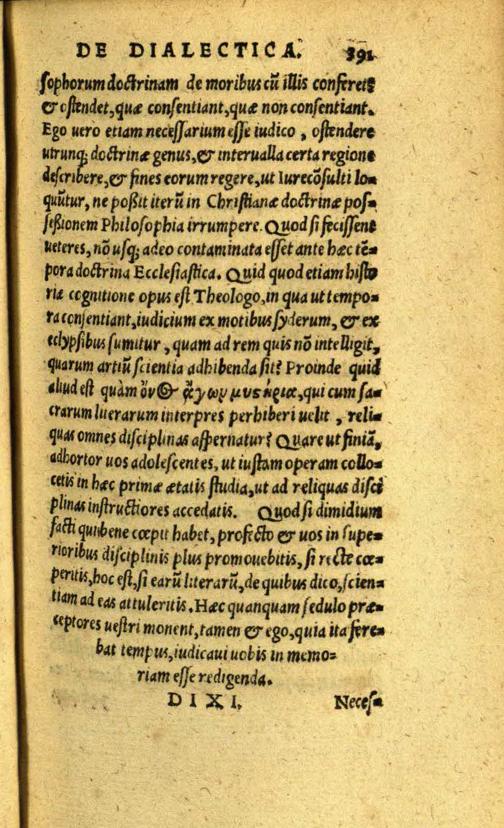 DE DIALECTICA. 391
sophorum doctrinam de moribus cū illis conferet,
& ostendet, quæ consentiant, quæ non consentiant.
Ego uero etiam necessarium esse iudico, ostendere
utrunq; doctrinæ genus, & interualla certa regione
describere, & fines eorum regere, ut Iurecōsulti lo=
quūtur, ne poßit iterū in Christianæ doctrinæ pos=
seßionem Philosophia irrumpere. Quod si fecissent
ueteres, nō usq; adeo contaminata esset ante hæc tē=
pora doctrina Ecclesiastica. Quid quod etiam histo
riæ cognitione opus est Theologo, in qua ut tempo=
ra consentiant, iudicium ex motibus syderum, & ex
eclypsibus sumitur, quam ad rem quis nō intelligit,
quarum artiū scientia adhibenda sit? Proinde quid
aliud est quàm ὄνος ἄγων μυστήρια, qui cum sa=
crarum literarum interpres perhiberi uelit, reli=
quas omnes disciplinas aspernatur? Quare ut finiā,
adhortor uos adolescentes, ut iustam operam collo=
cetis in hæc primæ ætatis studia, ut ad reliquas disci
plinas instructiores accedatis. Quod si dimidium
facti qui bene cœpit habet, profecto & uos in supe=
rioribus disciplinis plus promouebitis, si recte cœ=
peritis, hoc est, si earū literarū, de quibus dico, scien=
tiam ad eas attuleritis. Hæc quanquam sedulo præ=
ceptores uestri monent, tamen & ego, quia ita fere=
bat tempus, iudicaui uobis in memo=
riam esse redigenda.
DIXI. Necess=